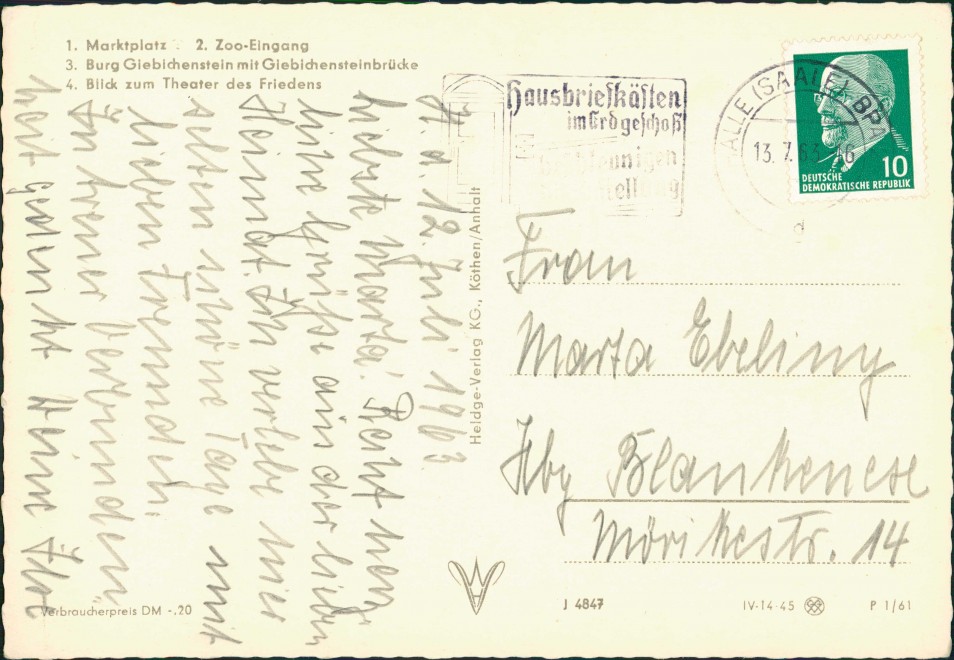 1. Marktplatz 2. Zoo-Eingang
3. Burg Giebichenstein mit Giebichensteinbrücke
4. Blick zum Theater des Friedens
Hausbriefkästen
im Erdgeschoß
HALLE (SAALE) BPA
13.7.63-16
d
DEUTSCHE
DEMOKRATISCHE REPUBLIK
10
H. d. 12. Juli 1963
Liebste Marta! Recht herz
Grüße aus der lieben
Heimat. Ich verlebe hier
schöne Tage mit
lieben Freunden.
In treuer Verbundenheit
Heldge-Verlag KG., Köthen/Anhalt
Frau
Marta Ebeling
Hbg Blankenese
Mörikestr. 14
Verbraucherpreis DM -.20
J 4847
IV-14-45
P 1/61